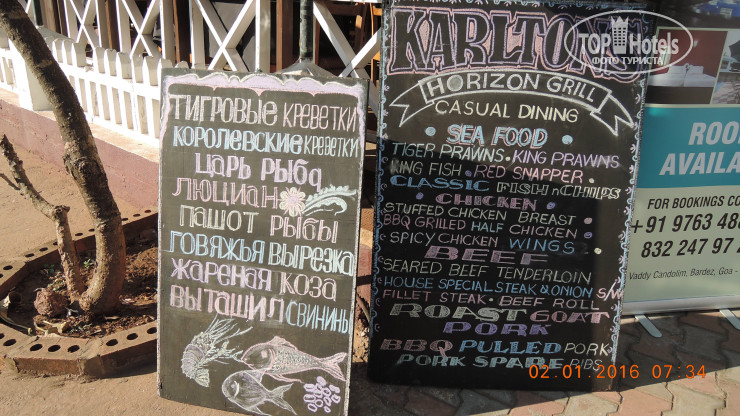 ТИГРОВЫЕ КРЕВЕТКИ
КОРОЛЕВСКИЕ КРЕВЕТКИ
ЦАРЬ РЫБА
ЛЮЦИАН
ПАШОТ РЫБЫ
ГОВЯЖЬЯ ВЫРЕЗКА
ЖАРЕНАЯ КОЗА
ВЫТАЩИЛ СВИНИНЫ
KARLTON'S
HORIZON GRILL
CASUAL DINING
SEA FOOD
TIGER PRAWNS • KING PRAWNS
KING FISH • RED SNAPPER •
CLASSIC FISH n CHIPS
CHICKEN
STUFFED CHICKEN BREAST •
BBQ GRILLED HALF CHICKEN •
SPICY CHICKEN WINGS •
BEEF
SEARED BEEF TENDERLOIN
HOUSE SPECIAL STEAK & ONION S/W
FILLET STEAK • BEEF ROLL
ROAST GOAT
PORK
BBQ PULLED PORK
PORK SPARE RIBS
TOPHotels
ФОТО ТУРИСТА
ROO
AVAILA
FOR BOOKINGS CO
+91 9763 48
832 247 97
Vaddy Candolim, Bardez, Goa -
02.01.2016 07:34